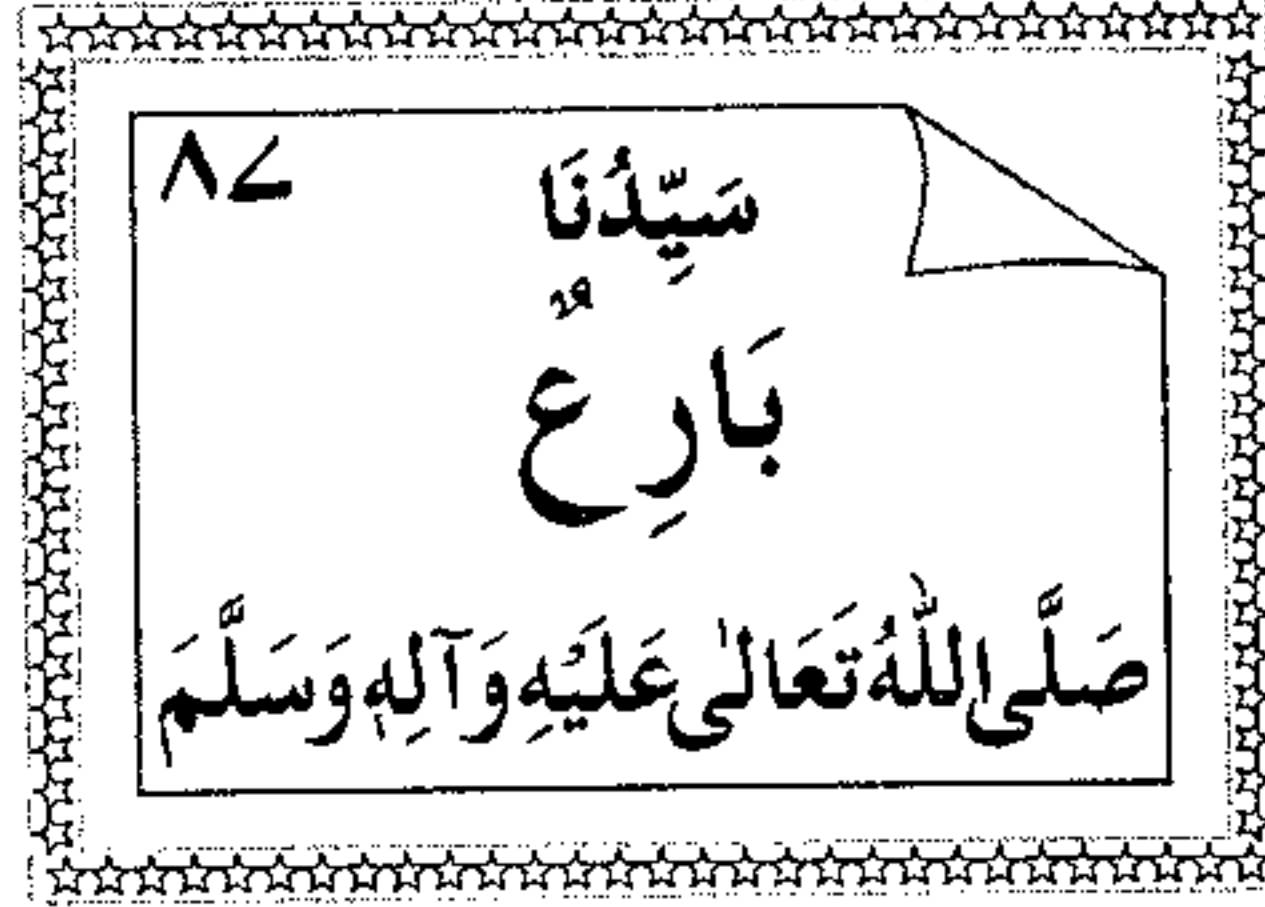 ۸۷
سَيِّدُنَا
بَارِعٌ
صَلَّى اللّٰهُ تَعَالٰى عَلَيْهِ وَآلِهٖ وَسَلَّمَ